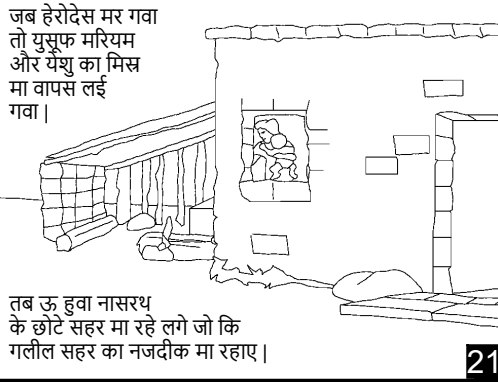 जब हेरोदेस मर गवा
तो युसूफ मरियम
और येशु का मिस्र
मा वापस लई
गवा |
तब ऊ हुवा नासरथ
के छोटे सहर मा रहे लगे जो कि
गलील सहर का नजदीक मा रहाए |
21